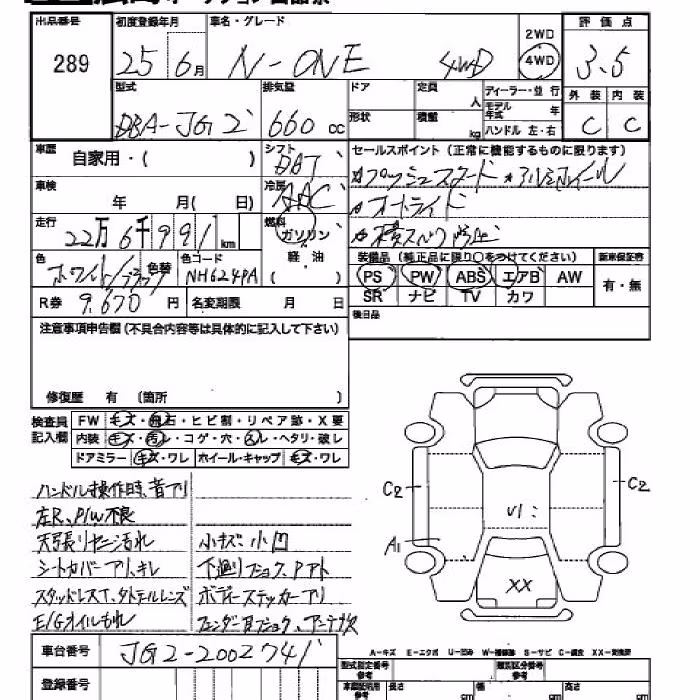 出品番号 初度登録年月 車名・グレード 評価点
289 25 6月 N-ONE 4WD 2WD 4WD 3.5
型式 排気量 ドア 定員 人 ディーラー・並行 外装 内装
DBA-JG2 660 cc 形状 積載 kg モデル年式 年 ハンドル 左・右 C C
車歴 自家用・( ) シフト セールスポイント (正常に機能するものに限ります)
車検 年 月( 日) 冷房 AAC プッシュスタート アルミホイール
走行 22万6千991km 燃料 ガソリン オートライド
軽油 ( )
色 ホワイト/ブラック 色替 色コード NH624PA 装備品 (純正品に限り○をつけてください) 新車保証書
PS PW ABS エアB AW 有・無
SR ナビ TV カワ
R券 9,670円 名変期限 月 日 後日品
注意事項申告欄 (不具合内容等は具体的に記入して下さい)
修復歴 有 (箇所 )
検査員記入欄 FW キズ・飛石・ヒビ割・リペア跡・X要
内装 キズ・汚レ・コゲ・穴・スレ・ヘタリ・破レ
ドアミラー キズ・ワレ ホイール・キャップ キズ・ワレ
ハンドル操作時、音アリ
左R、P/W不良
天張リヤニ汚れ 小キズ、小凹
シートカバーアリ、キレ 下廻りフショク、Pアト
スタッドレスT、外テールレンズ ボディーステッカーアリ
E/Gオイルもれ フェンダー耳フショク、アンテナ欠
C2 C2
U1:
A1
XX
A-キズ E-エクボ U-凹み W-補修跡 S-サビ C-腐食 XX-交換済
車台番号 JG2-2002741
登録番号 型式指定番号 参考 類別区分番号 参考
長さ cm 幅 cm 高さ cm